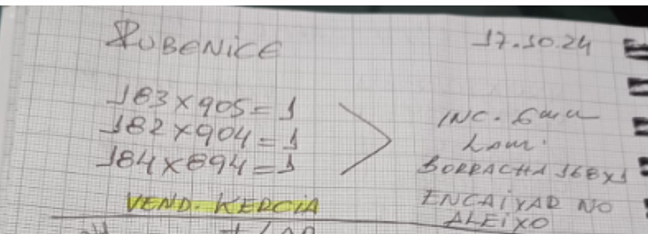 RUBENICE 17.10.24
183 x 905 = 1
182 x 904 = 1
184 x 894 = 1
INC. 6mm
Lam.
BORRACHA 168x1
ENCAIXAD NO
ALEIXO
VEND. KERCIA